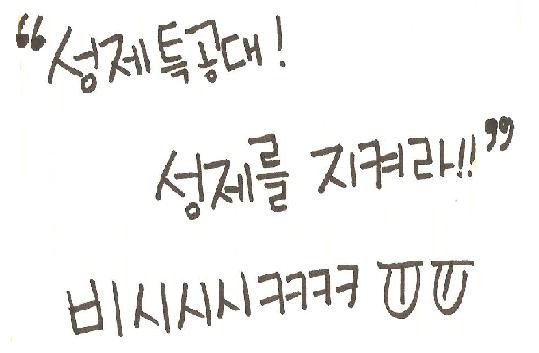 “성제특공대!
성제를 지켜라!!”
비시시시ㅋㅋㅋㅋ ㅠㅠ